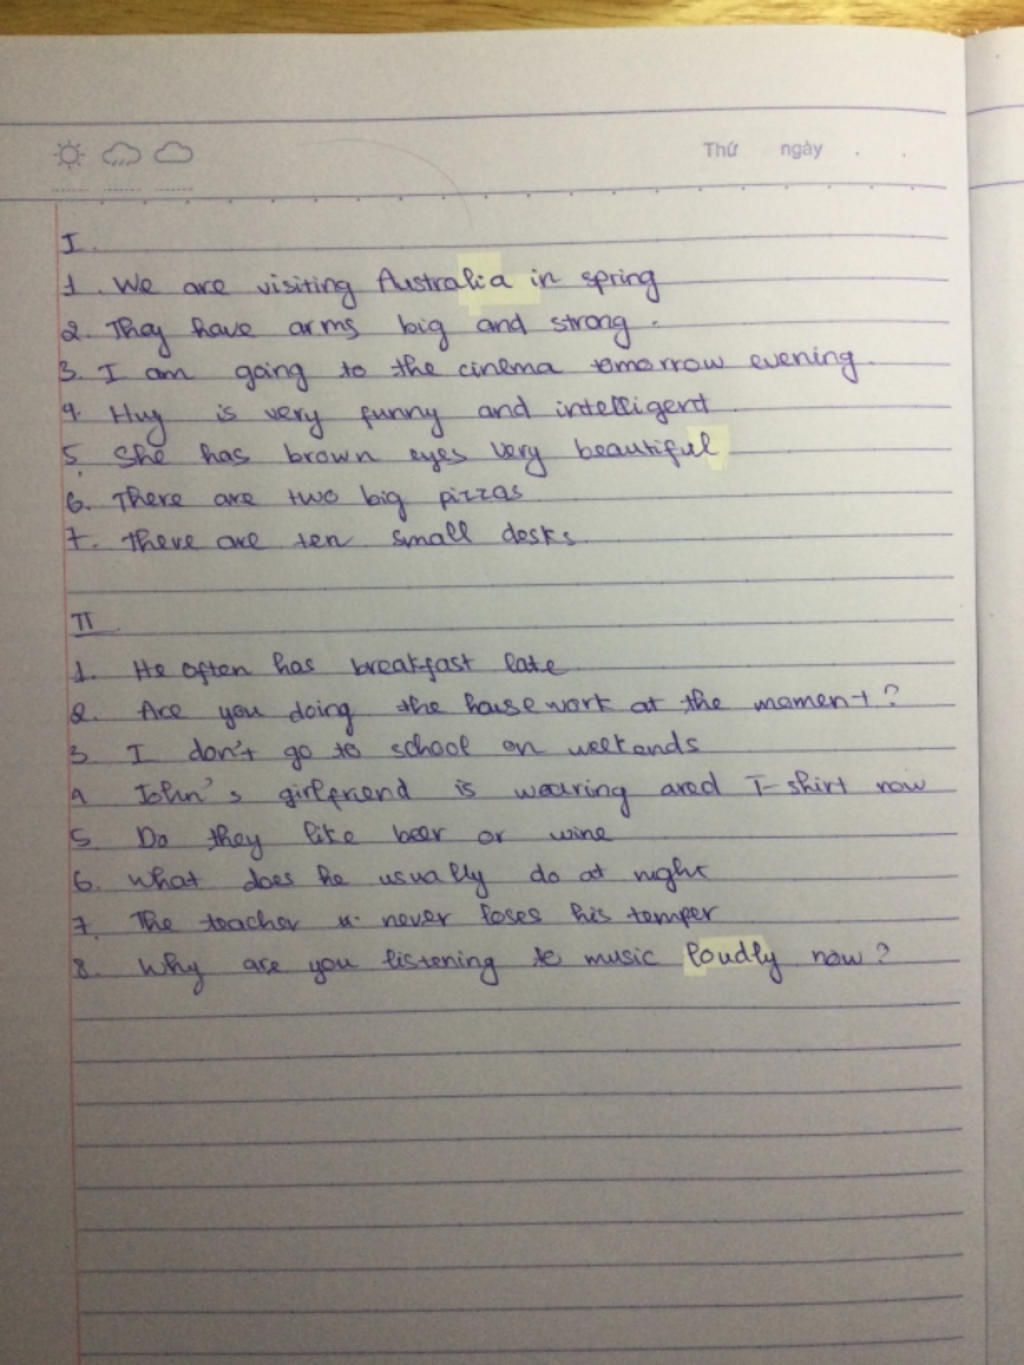 Thứ ngày . .
I.
1. We are visiting Australia in spring
2. They have arms big and strong.
3. I am going to the cinema tomorrow evening.
4. Huy is very funny and intelligent
5. She has brown eyes very beautiful
6. There are two big pizzas
7. There are ten small desks.
II
1. He often has breakfast late
2. Are you doing the housework at the moment?
3 I don't go to school on weekends
4 John's girlfriend is wearing a red T-shirt now
5. Do they like beer or wine
6. What does he usually do at night
7. The teacher never loses his temper
8. Why are you listening to music loudly now?